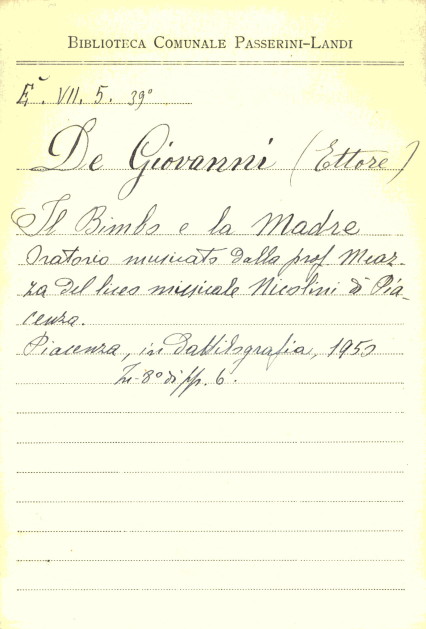 BIBLIOTECA COMUNALE PASSERINI-LANDI
E˘. VII. 5. 39°
De Giovanni (Ettore)
Il Bimbo e la Madre
Oratorio musicato dalla prof. Meaz-
za del liceo musicale Nicolini di Pia-
cenza.
Piacenza, in dattilografia, 1950
In-8° di pp. 6.